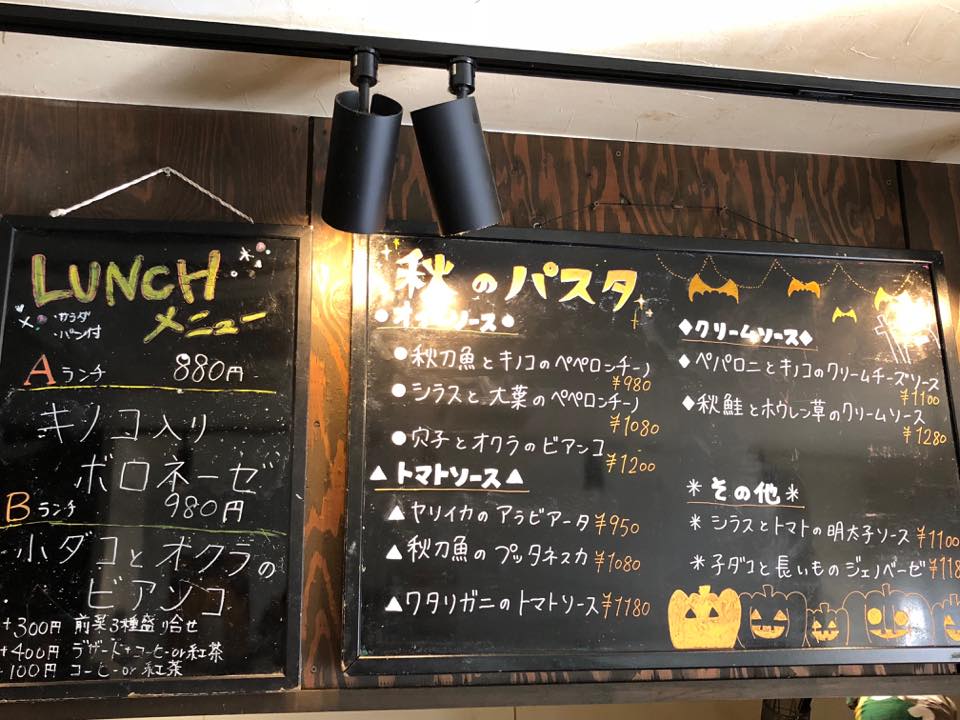 LUNCH
メニュー
・サラダ
・パン付
Aランチ 880円
キノコ入り
ボロネーゼ
Bランチ 980円
小ダコとオクラの
ビアンコ
+300円 前菜3種盛り合せ
+400円 デザート+コーヒーor紅茶
100円 コーヒーor紅茶
秋のパスタ
ソース
●秋刀魚とキノコのペペロンチーノ
¥980
●シラスと大葉のペペロンチーノ
¥1080
●穴子とオクラのビアンコ
¥1200
▲トマトソース▲
▲ヤリイカのアラビアータ ¥950
▲秋刀魚のプッタネスカ ¥1080
▲ワタリガニのトマトソース ¥1180
◆クリームソース◆
◆ペパロニとキノコのクリームチーズソース
¥1100
◆秋鮭とホウレン草のクリームソース
¥1280
*その他*
*シラスとトマトの明太子ソース ¥1100
*子ダコと長いものジェノベーゼ ¥118